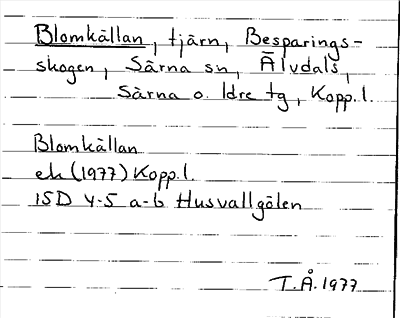 Blomkällan, tjärn, Besparings-
skogen, Särna sn, Älvdals,
Särna o. Idre tg, Kopp.l.
Blomkällan
ek (1977) Kopp.l.
15D 4-5 a-b Husvallgölen
T.Å. 1977